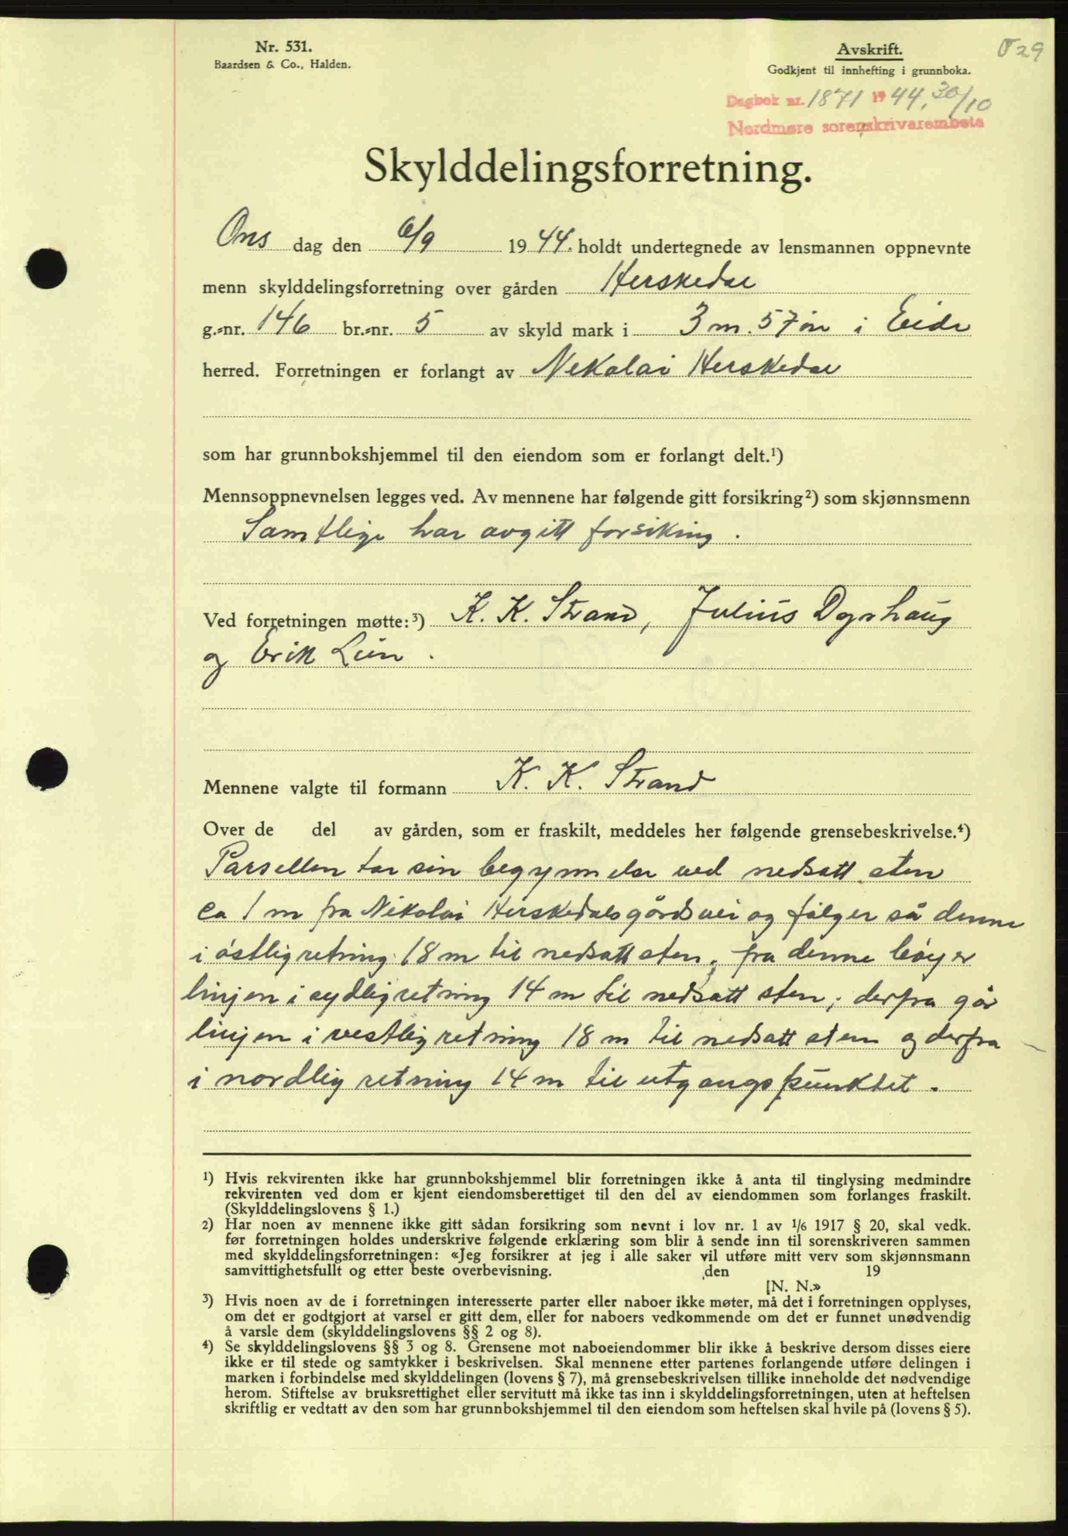 Nr. 531.
Baardsen & Co., Halden.
Avskrift.
Godkjent til innhefting i grunnboka.
829
Dagbok nr. 1871 1944, 30/10
Nordmøre sorenskrivarembete
Skylddelingsforretning.
Ons dag den 6/9 1944. holdt undertegnede av lensmannen oppnevnte
menn skylddelingsforretning over gården Herskedal
g.-nr. 146 br.-nr. 5 av skyld mark i 3 m. 57 ør i Eide
herred. Forretningen er forlangt av Nekolai Herskedal
som har grunnbokshjemmel til den eiendom som er forlangt delt.¹)
Mennsoppnevnelsen legges ved. Av mennene har følgende gitt forsikring²) som skjønnsmenn
Samtlige har avgitt forsikring.
Ved forretningen møtte:³) K. K. Strand, Julius Dyrhaug
og Erik Lien.
Mennene valgte til formann K. K. Strand
Over de del av gården, som er fraskilt, meddeles her følgende grensebeskrivelse.⁴)
Parsellen tar sin begynnelse ved nedsatt sten
ca 1 m fra Nikolai Herskedals gårdsvei og følger så denne
i østlig retning 18 m til nedsatt sten, fra denne bøyer
linjen i sydlig retning 14 m til nedsatt sten, derfra går
linjen i vestlig retning 18 m til nedsatt sten og derfra
i nordlig retning 14 m til utgangspunktet.
¹) Hvis rekvirenten ikke har grunnbokshjemmel blir forretningen ikke å anta til tinglysing medmindre
rekvirenten ved dom er kjent eiendomsberettiget til den del av eiendommen som forlanges fraskilt.
(Skylddelingslovens § 1.)
²) Har noen av mennene ikke gitt sådan forsikring som nevnt i lov nr. 1 av ¹/₆ 1917 § 20, skal vedk.
før forretningen holdes underskrive følgende erklæring som blir å sende inn til sorenskriveren sammen
med skylddelingsforretningen: «Jeg forsikrer at jeg i alle saker vil utføre mitt verv som skjønnsmann
samvittighetsfullt og etter beste overbevisning. den 19
[N. N.»
³) Hvis noen av de i forretningen interesserte parter eller naboer ikke møter, må det i forretningen opplyses,
om det er godtgjort at varsel er gitt dem, eller for naboers vedkommende om det er funnet unødvendig
å varsle dem (skylddelingslovens §§ 2 og 8).
⁴) Se skylddelingslovens §§ 3 og 8. Grensene mot naboeiendommer blir ikke å beskrive dersom disses eiere
ikke er til stede og samtykker i beskrivelsen. Skal mennene etter partenes forlangende utføre delingen i
marken i forbindelse med skylddelingen (lovens § 7), må grensebeskrivelsen tillike inneholde det nødvendige
herom. Stiftelse av bruksrettighet eller servitutt må ikke tas inn i skylddelingsforretningen, uten at heftelsen
skriftlig er vedtatt av den som har grunnbokshjemmel til den eiendom som heftelsen skal hvile på (lovens § 5).